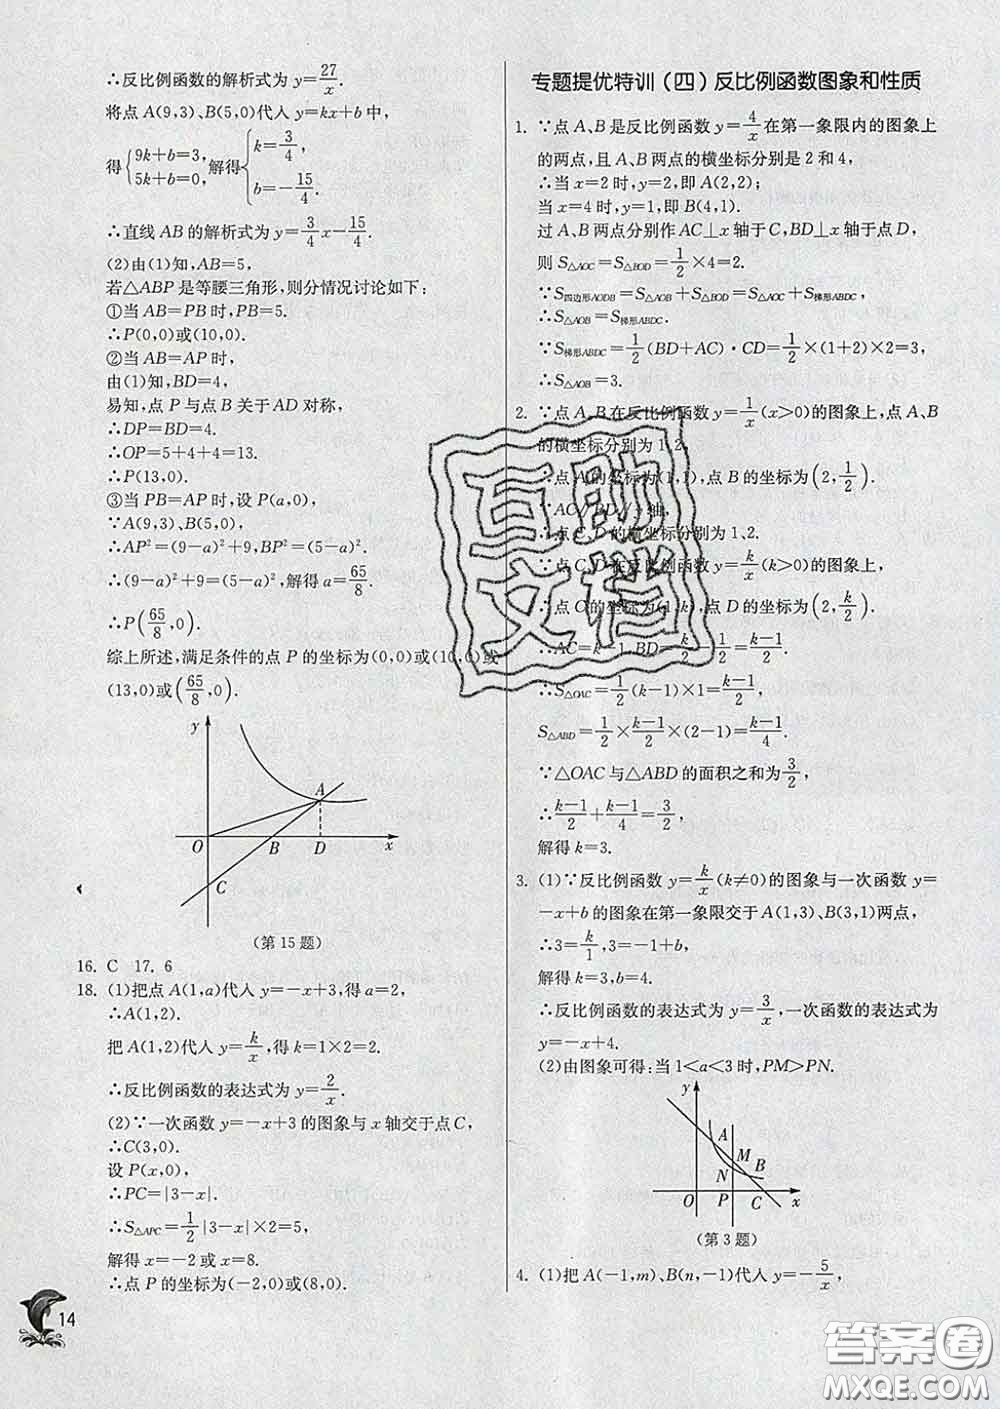 ∴反比例函数的解析式为 y=27/x.
将点 A(9,3)、B(5,0)代入 y=kx+b 中,
得{9k+b=3, 5k+b=0, 解得{k=3/4, b=-15/4.
∴直线 AB 的解析式为 y=3/4x-15/4.
(2)由(1)知,AB=5,
若△ABP 是等腰三角形,则分情况讨论如下:
①当 AB=PB 时,PB=5.
∴P(0,0)或(10,0).
②当 AB=AP 时,
由(1)知,BD=4,
易知,点 P 与点 B 关于 AD 对称,
∴DP=BD=4.
∴OP=5+4+4=13.
∴P(13,0).
③当 PB=AP 时,设 P(a,0),
∵A(9,3)、B(5,0),
∴AP²=(9-a)²+9,BP²=(5-a)².
∴(9-a)²+9=(5-a)²,解得 a=65/8.
∴P(65/8,0).
综上所述,满足条件的点 P 的坐标为(0,0)或(10,0)或
(13,0)或(65/8,0).
y
A
O B D x
C
(第 15 题)
16. C 17. 6
18. (1)把点 A(1,a)代入 y=-x+3,得 a=2,
∴A(1,2).
把 A(1,2)代入 y=k/x,得 k=1×2=2.
∴反比例函数的表达式为 y=2/x.
(2)∵一次函数 y=-x+3 的图象与 x 轴交于点 C,
∴C(3,0).
设 P(x,0),
∴PC=|3-x|.
∴S△APC=1/2|3-x|×2=5,
解得 x=-2 或 x=8.
∴点 P 的坐标为(-2,0)或(8,0).
14
专题提优特训(四)反比例函数图象和性质
1. ∵点 A、B 是反比例函数 y=4/x 在第一象限内的图象上
的两点,且 A、B 两点的横坐标分别是 2 和 4,
∴当 x=2 时,y=2,即 A(2,2);
当 x=4 时,y=1,即 B(4,1).
过 A、B 两点分别作 AC⊥x 轴于 C,BD⊥x 轴于点 D,
则 S△AOC=S△BOD=1/2×4=2.
∵S四边形AODB=S△AOB+S△BOD=S△AOC+S梯形ABDC,
∴S△AOB=S梯形ABDC.
∵S梯形ABDC=1/2(BD+AC)·CD=1/2×(1+2)×2=3,
∴S△AOB=3.
2. ∵点 A、B 在反比例函数 y=1/x(x>0)的图象上,点 A、B
的横坐标分别为 1、2,
∴点 A 的坐标为(1,1),点 B 的坐标为(2,1/2).
∵AC//BD//y 轴,
∴点 C、D 的横坐标分别为 1、2.
∵点 C、D 在反比例函数 y=k/x(k>0)的图象上,
∴点 C 的坐标为(1,k),点 D 的坐标为(2,k/2).
∴AC=k-1,BD=k/2-1/2=k-1/2.
∴S△OAC=1/2(k-1)×1=k-1/2,
S△ABD=1/2×k-1/2×(2-1)=k-1/4.
∵△OAC 与△ABD 的面积之和为3/2,
∴k-1/2+k-1/4=3/2,
解得 k=3.
3. (1)∵反比例函数 y=k/x(k≠0)的图象与一次函数 y=
-x+b 的图象在第一象限交于 A(1,3)、B(3,1)两点,
∴3=k/1,3=-1+b,
解得 k=3,b=4.
∴反比例函数的表达式为 y=3/x,一次函数的表达式为
y=-x+4.
(2)由图象可得:当 1<a<3 时,PM>PN.
y
A
M
N B
O P C x
(第 3 题)
4. (1)把 A(-1,m)、B(n,-1)代入 y=-5/x,
互助
文档
答案圈
MXQE.COM